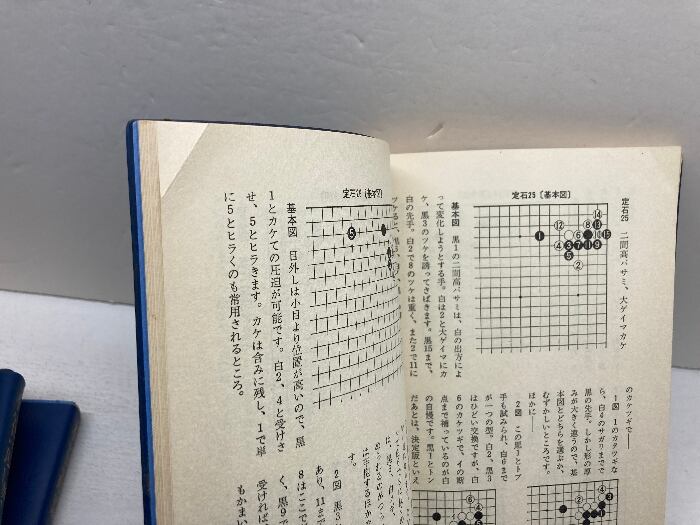 定石25　二間高バサミ、大ゲイマカケ
定石25〔基本図〕
基本図　黒1の二間高バサミは、白の出方によ
って変化しようとする手。白は2と大ゲイマにカ
ケ、黒3のツケを誘ってさばきます。黒15まで、
白の先手。白2で8のツケは重く、また2で11に
のカケツギで──
1図　1のカタツギな
ら、白6のサガリまでで
黒の先手。しかし形の厚
みが大きく違うので、基
本図とどちらを選ぶか、
むずかしいところです。
ほかに──
2図　この黒1とトブ
手も試みられ、白6まで
が一つの型。白2、黒3
はひどい交換ですが、白
6のカケツギで、イの断
点まで補っているのが白
の自慢です。黒1とトン
だあとは、決定版といえ
定石26〔基本図〕
基本図　目外しは小目より位置が高いので、黒
1とカケての圧迫が可能です。白2、4と受けさ
せ、5とヒラきます。カケは含みに残し、1で単
に5とヒラくのも常用されるところ。
す。
2図　黒3
あり、11まで
8はここで
く、黒9で
受ければ
もかまい